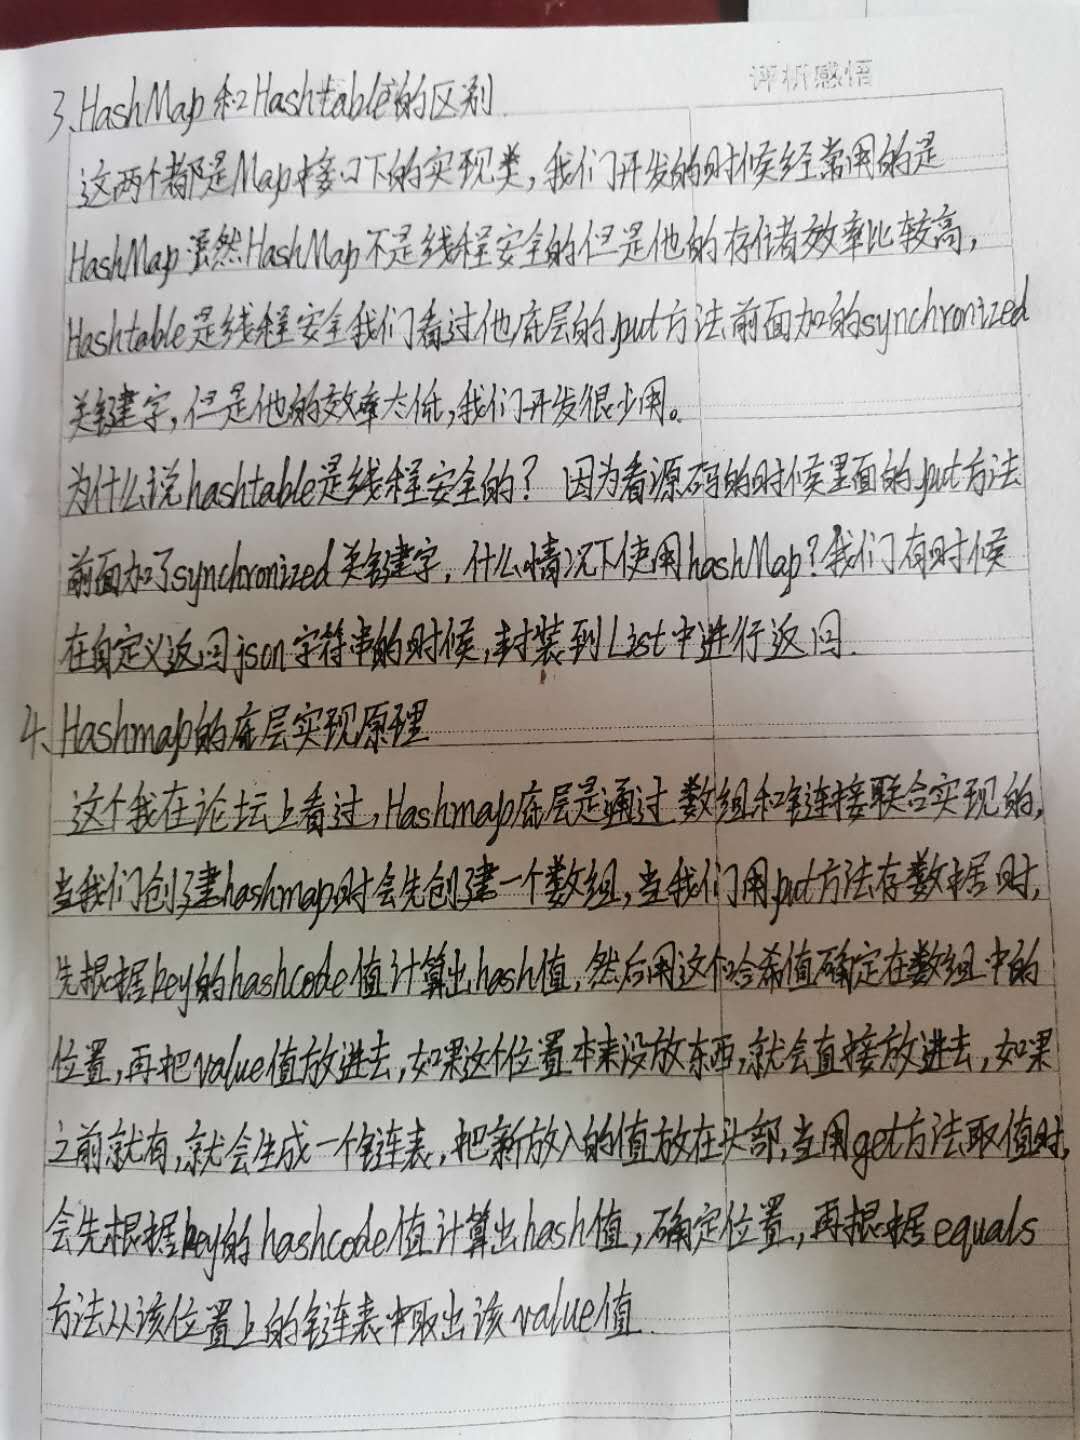 3、HashMap和Hashtable的区别
这两个都是Map接口下的实现类,我们开发的时候经常用的是
HashMap虽然HashMap不是线程安全的但是他的存储效率比较高,
Hashtable是线程安全我们看过他底层的put方法前面加的synchronized
关键字,但是他的效率太低,我们开发很少用。
为什么说hashtable是线程安全的?因为看源码的时候里面的put方法
前面加了synchronized关键字,什么情况下使用hashMap?我们有时候
在自定义返回json字符串的时候,封装到List中进行返回.
4、Hashmap的底层实现原理
这个我在论坛上看过,Hashmap底层是通过数组和链接联合实现的,
当我们创建hashmap时会先创建一个数组,当我们用put方法存数据时,
先根据key的hashcode值计算出hash值,然后用这个哈希值确定在数组中的
位置,再把value值放进去,如果这个位置本来没放东西,就会直接放进去,如果
之前就有,就会生成一个链表,把新放入的值放在头部,当用get方法取值时,
会先根据key的hashcode值计算出hash值,确定位置,再根据equals
方法从该位置上的链表中取出该value值.